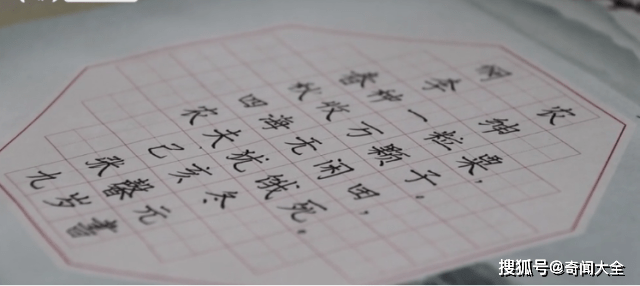 悯农
李绅
春种一粒粟，
秋收万颗子。
四海无闲田，
农夫犹饿死。
己亥冬
张馨元
九岁书
搜狐号@奇闻大全